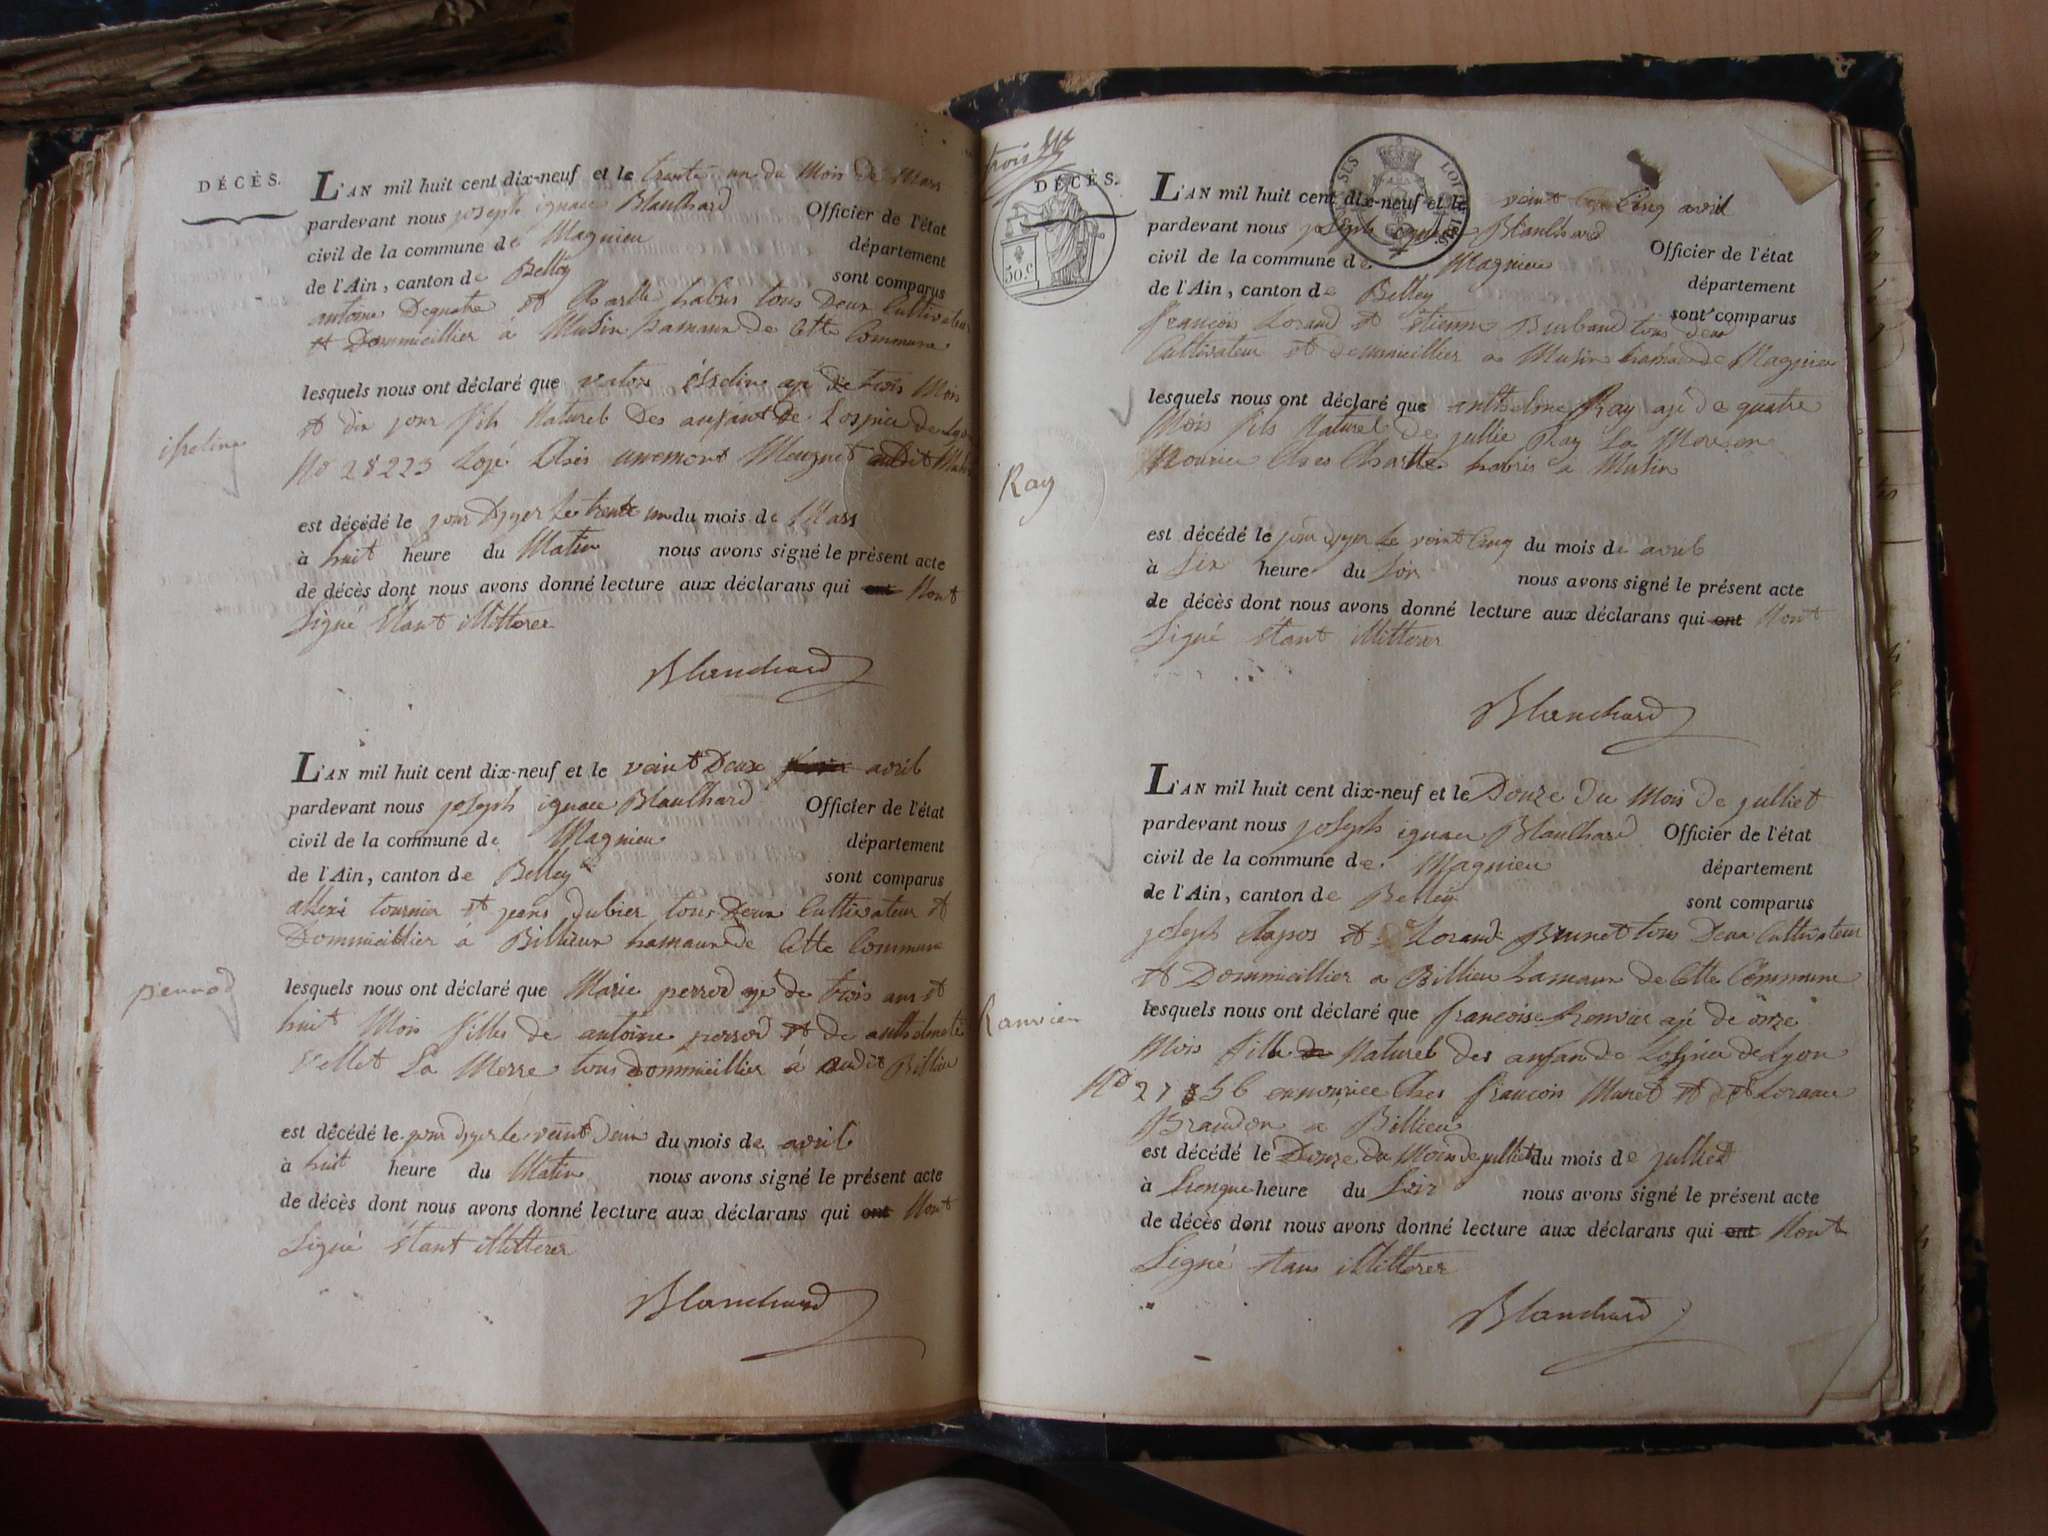 DÉCÈS.
L'AN mil huit cent dix-neuf et le trente un du Mois de Mars
pardevant nous joseph ignace Blanchard Officier de l'état
civil de la commune de Magnieu département
de l'Ain, canton de Belley sont comparus
antoine Dequatre et Charlle habris tous Deux Cultivateur
et Dommicillier à Musin hamaux de Cette Commune
lesquels nous ont déclaré que issoline agé de trois Mois
et dix jour fils Naturel Des anfant De Lospice de Lyon
No 28223 Logé Ches Meugnet audit Musin
est décédé le jour Dyer le trente un du mois de Mars
à huit heure du Matin nous avons signé le présent acte
de décès dont nous avons donné lecture aux déclarans qui ont Nont
Signé étant illitterer
Blanchard
L'AN mil huit cent dix-neuf et le veint Deux avril
pardevant nous joseph ignace Blanchard Officier de l'état
civil de la commune de Magnieu département
de l'Ain, canton de Belley sont comparus
allexi tournier et jeans dubier tous Deux Cultivateur et
Dommicillier à Billieux hamaux de Cette Commune
perrod
lesquels nous ont déclaré que Marie perrod agé de trois ans et
huit Mois filles de antoine perrod et de anthelmete
Vellet La Merre tous dommicillier à audit Billieu
est décédé le jour dyer le veint deux du mois de avril
à huit heure du Matin nous avons signé le présent acte
de décès dont nous avons donné lecture aux déclarans qui ont Nont
Signé étant illitterer
Blanchard
trois
DÉCÈS.
50.c
LOUIS
L'AN mil huit cent dix-neuf et le veint Cinq avril
pardevant nous joseph ignace Blanchard
civil de la commune de Magnieu Officier de l'état
de l'Ain, canton de Belley département
sont comparus
françois Lorand et étienne Burband tous deux
Cultivateur et dommicillier a Musin hamau de Magnieu
lesquels nous ont déclaré que anthelme Ray agé de quatre
Mois fils Naturel de jullie Ray La Mere en
Ray
Nourice Ches Charlle habris a Musin
est décédé le jour dyer le veint Cinq du mois de avril
à Six heure du Soir nous avons signé le présent acte
de décès dont nous avons donné lecture aux déclarans qui ont Nont
Signé étant illitterer
Blanchard
L'AN mil huit cent dix-neuf et le Douze du Mois de julliet
pardevant nous joseph ignace Blanchard Officier de l'état
civil de la commune de Magnieu département
de l'Ain, canton de Belley sont comparus
joseph Chapos et Lorand Brunet tous Deux Cultivateur
et Dommicillier a Billieu hamaux de Cette Commune
Ranvier
lesquels nous ont déclaré que francoise Renvier agé de onze
Mois fille Naturel des anfan de Lospice de Lyon
No 27856 en nourice Ches françois Munet et de Lorance
Brandon a Billieu
est décédé le Douze du Mois de julliet du mois de julliet
à Sienque heure du Soir nous avons signé le présent acte
de décès dont nous avons donné lecture aux déclarans qui ont Nont
Signé étans illitterer
Blanchard